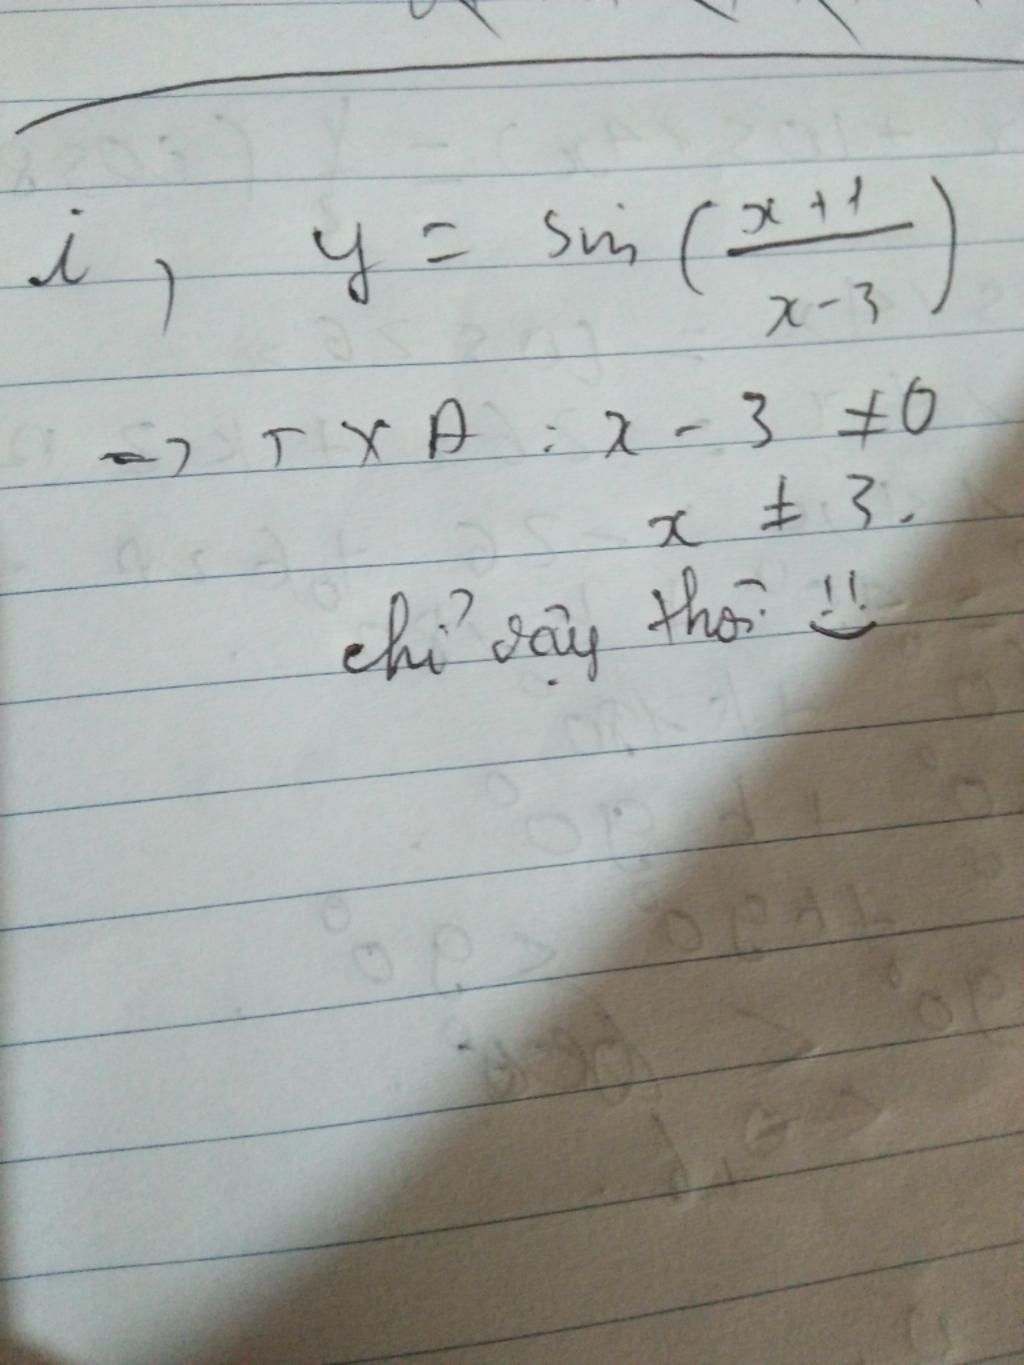 i, y = sin (x+1 / x-3)
=> TXĐ : x - 3 ≠ 0
x ≠ 3.
chỉ vậy thôi !!